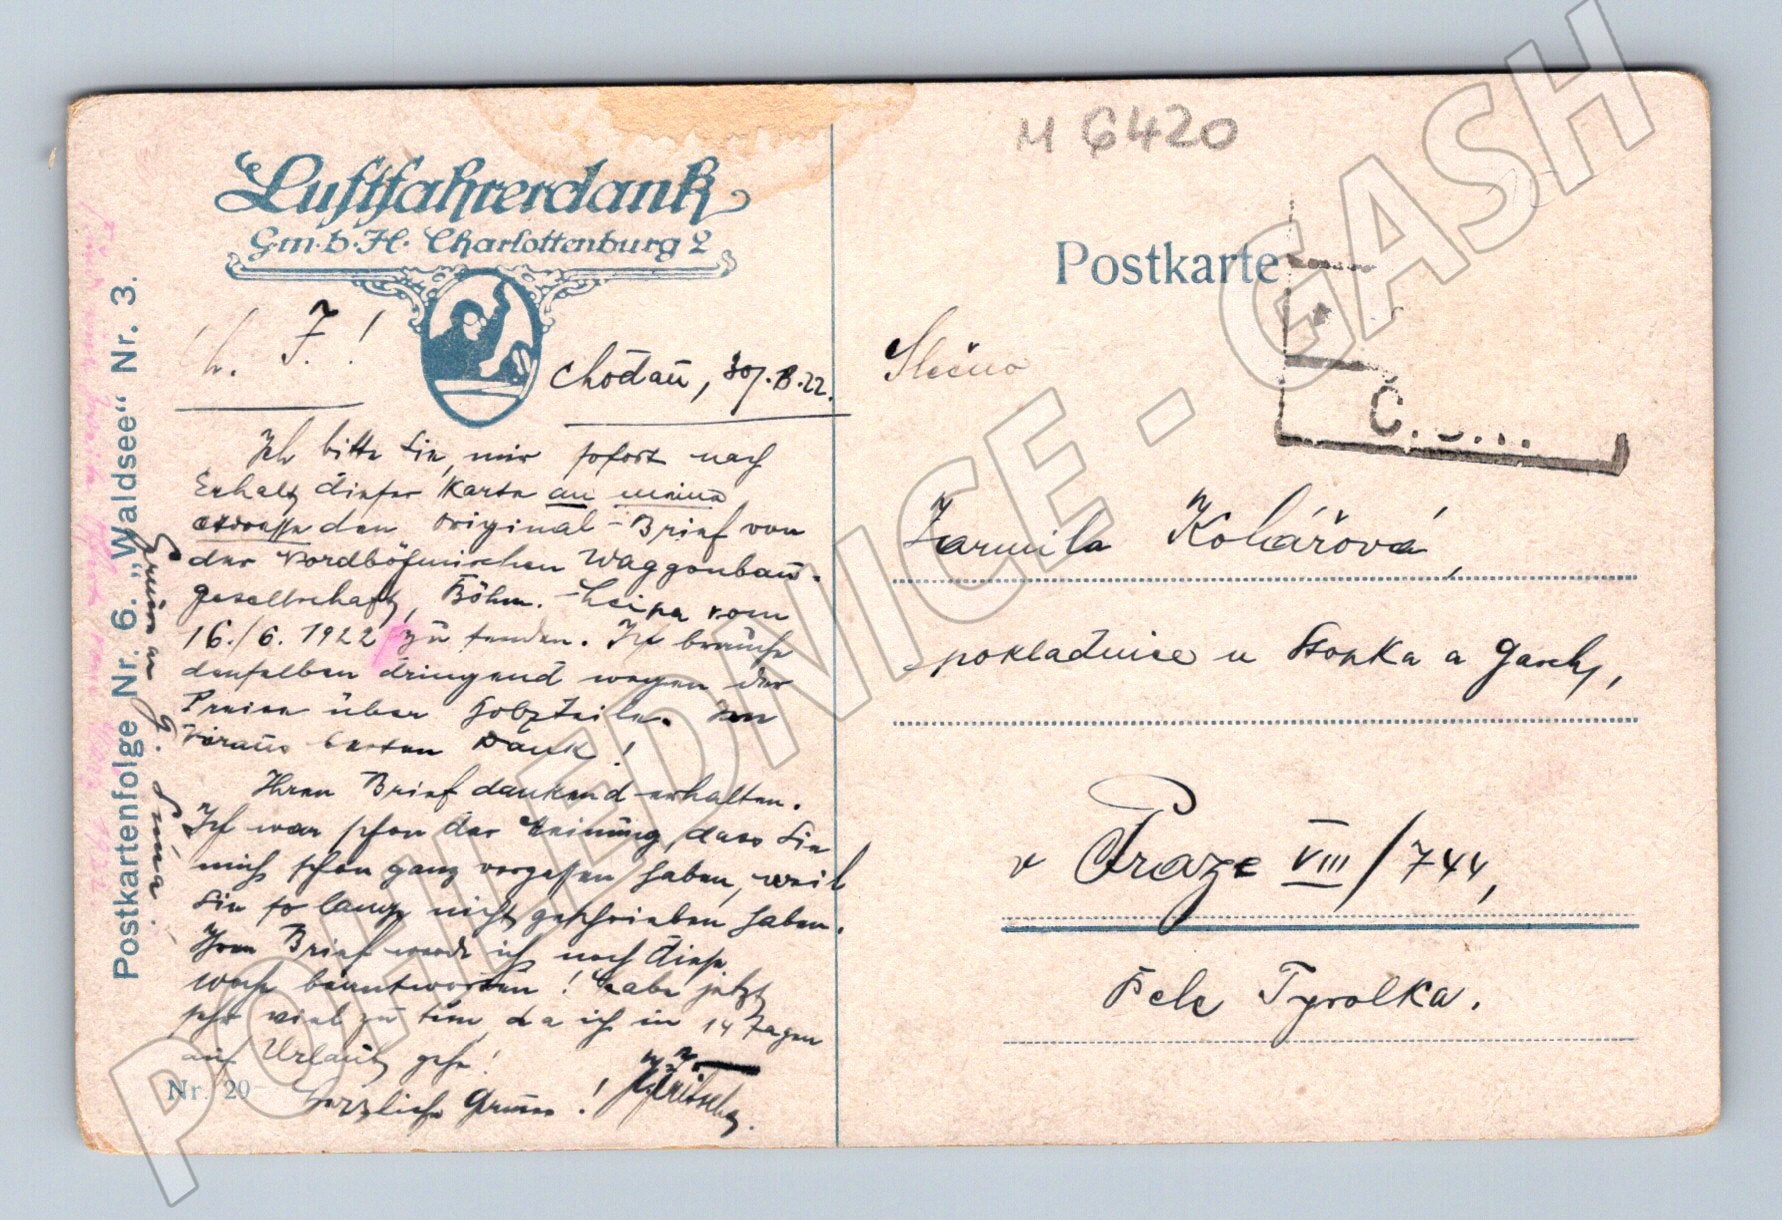 M 6420
Luftfahrerdank
G.m.b.H. Charlottenburg 2
Postkarte
Chodau, 30/.8.22.
Ich bitte Sie, mir sofort nach
Erhalt dieser Karte an meine
Adresse den Original-Brief von
der Nordböhmischen Waggonbau-
gesellschaft, Böhm.-Leipa vom
16./6. 1922 zu senden. Ich brauche
denselben dringend wegen der
Preise über Holzteile. Im
Voraus besten Dank!
Ihren Brief dankend erhalten.
Ich war schon der Meinung, dass Sie
mich schon ganz vergessen haben, weil
Sie so lange nicht geschrieben haben.
Ihren Brief werde ich noch diese
Woche beantworten! Habe jetzt
sehr viel zu tun, da ich in 14 Tagen
auf Urlaub gehe!
Herzliche Grüsse!
Nr. 20
Postkartenfolge Nr. 6. „Waldsee“ Nr. 3.
Slečna
Jarmila Kohářová,
pokladnice u
v Praze VIII/744,
Fele Tyrolka.
POHLEDNICE - GASH